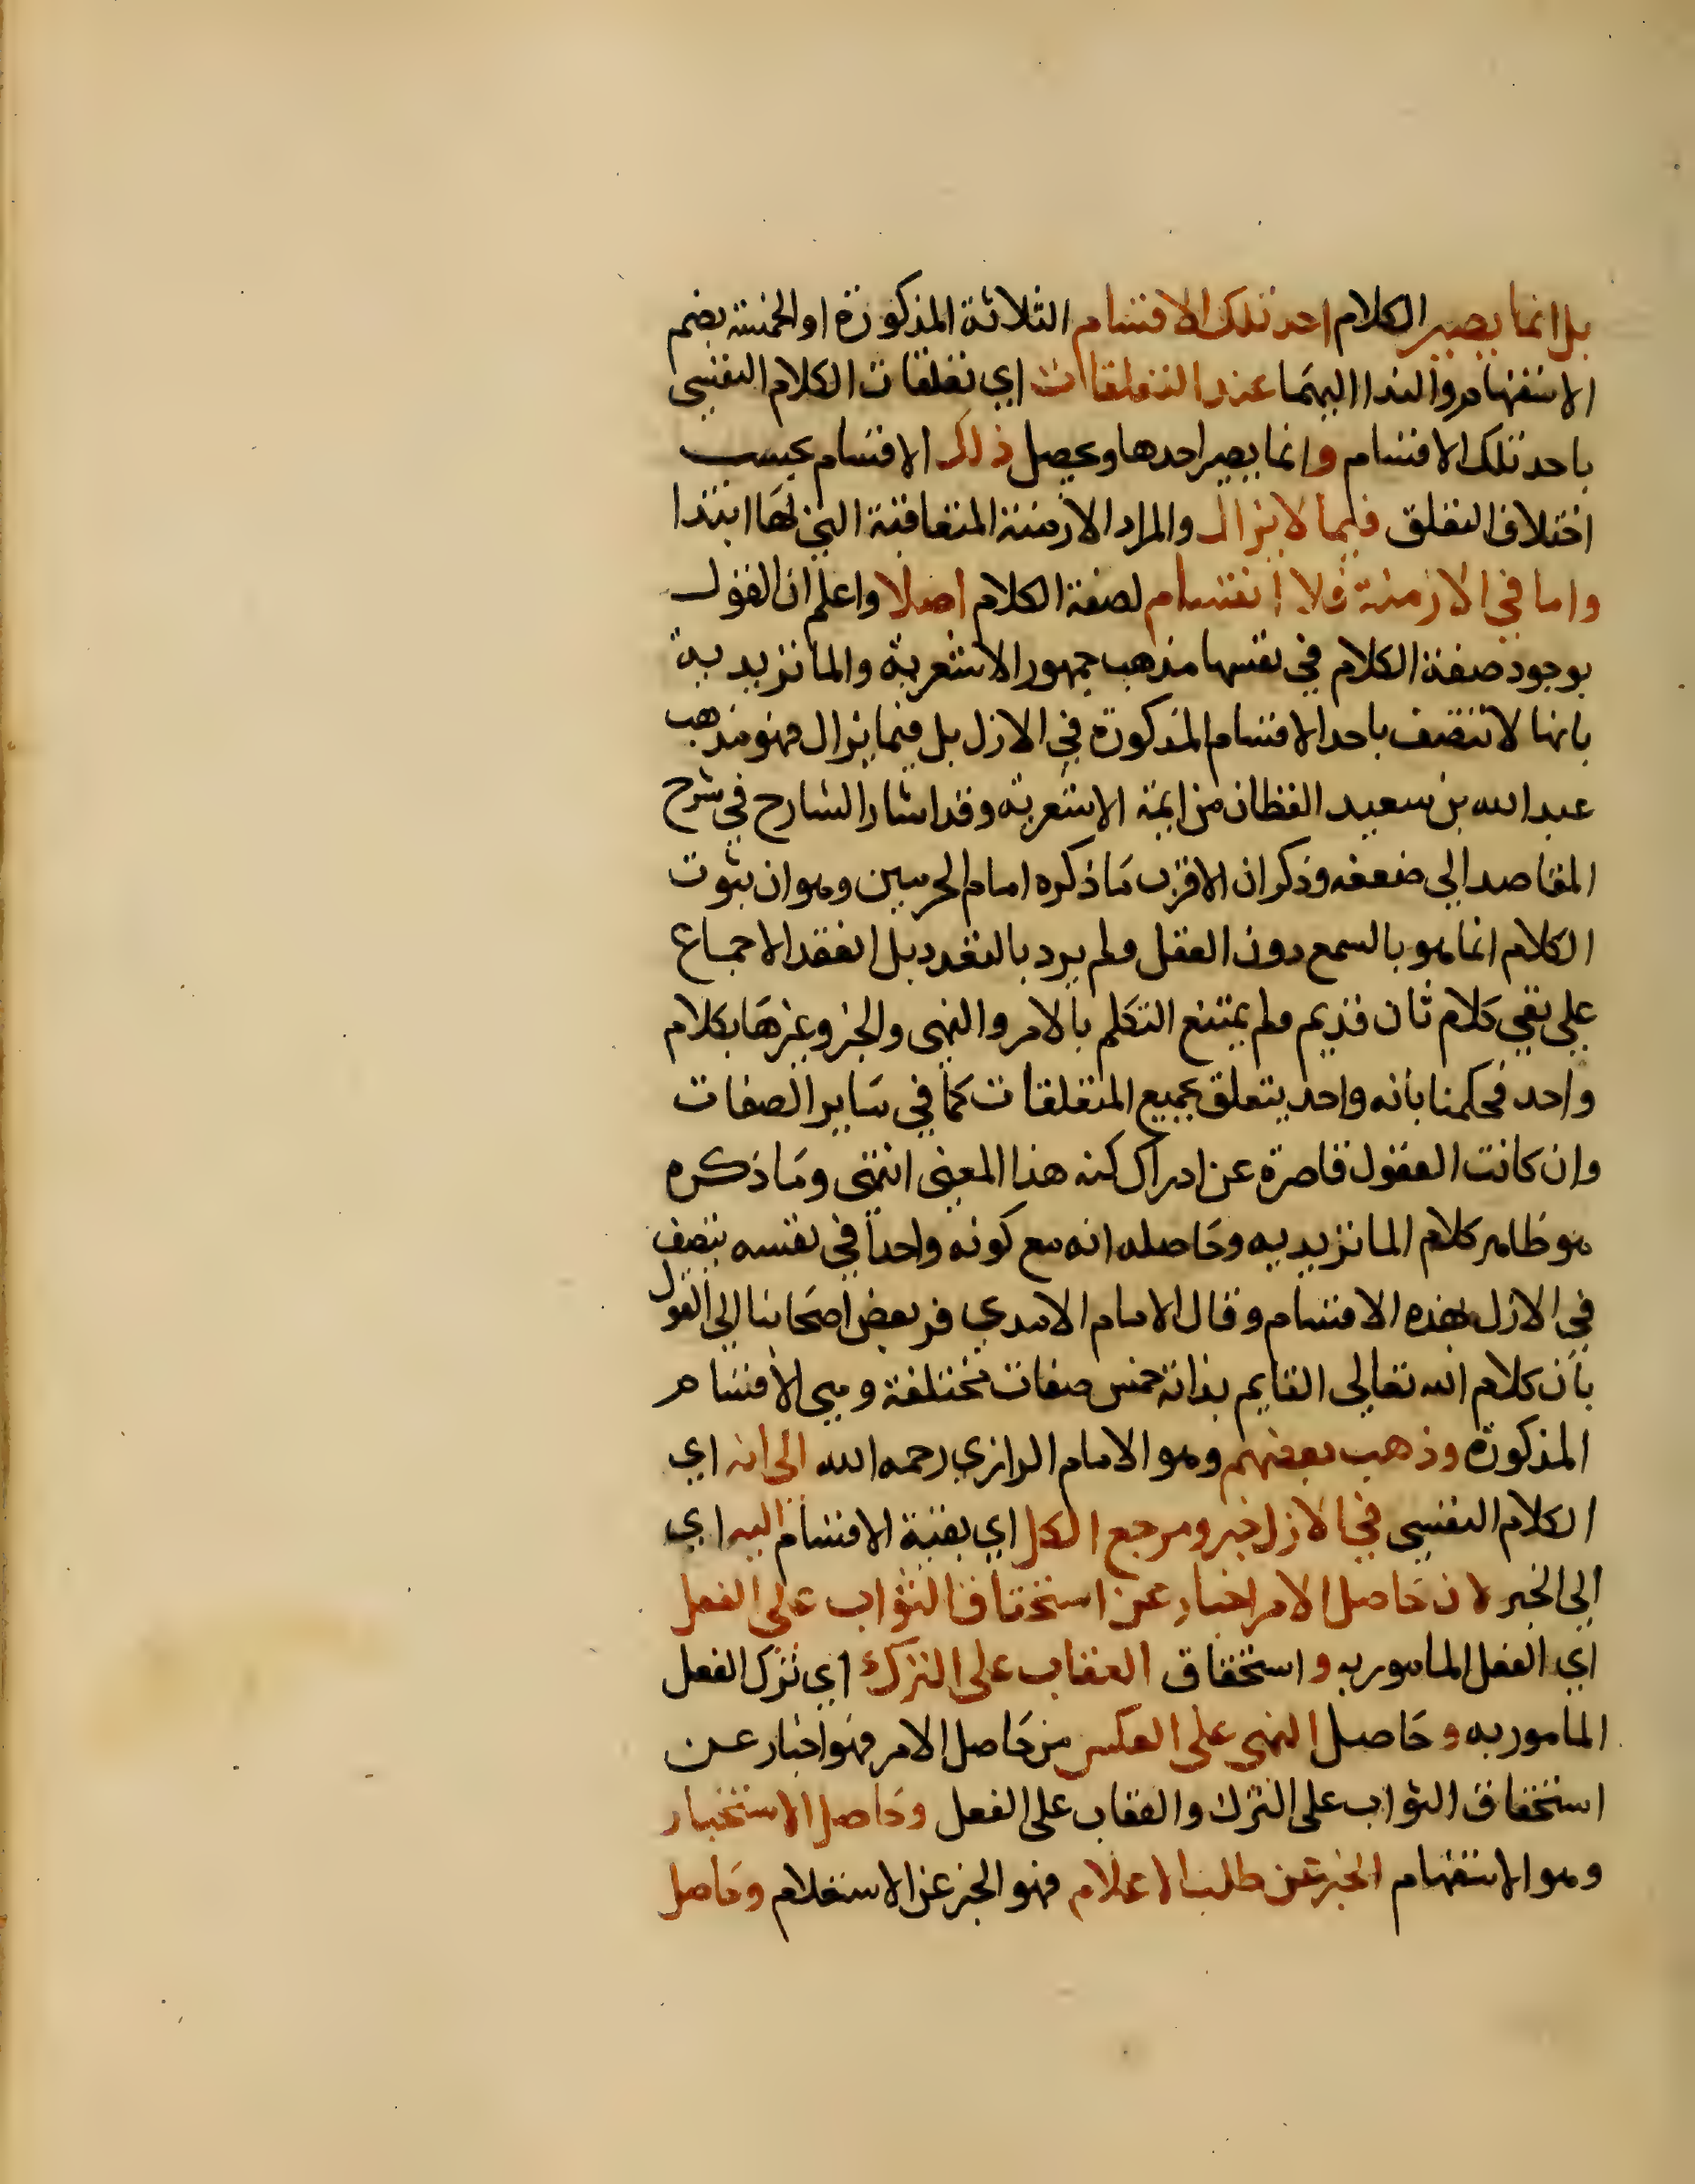 بل انما يصير الكلام احد تلك الاقسام الثلاثة المذكورة او الخمسة بضم
الاستفهام والندا اليهما عند التعلقات اي تعلقات الكلام النفسي
باحد تلك الاقسام وانما يصير احدها ويحصل ذلك الاقسام بحسب
اختلاف التعلق فيما لا يزال والمراد الازمنة المتعاقبة التي لها ابتدا
واما في الازمنة فلا انقسام لصفة الكلام اصلا واعلم ان القول
بوجود صفة الكلام في نفسها مذهب جمهور الاشعرية والماتزيدية
بانها لا تتصف باحد الاقسام المذكورة في الازل بل فيما يزال فهو مذهب
عبد الله بن سعيد القطان من ايمة الاشعرية وقد اشار الشارح في شرح
المقاصد الي ضعفه وذكر ان الاقرب ما ذكره امام الحرمين وهو ان ثبوت
الكلام انما هو بالسمع دون العقل ولم يرد بالتعدد بل انعقد الاجماع
علي نفي كلام ثان قديم ولم يمتنع التكلم بالامر والنهي والخبر وغيرها بكلام
واحد فحكمنا بانه واحد يتعلق بجميع المتعلقات كما في ساير الصفات
وان كانت العقول قاصرة عن ادراك كنه هذا المعني انتهي وما ذكره
هو ظاهر كلام الماتزيديه وحاصله انه مع كونه واحدا في نفسه يتصف
في الازل بهذه الاقسام وقال الامام الامدي فر بعض اصحابنا الي القول
بان كلام الله تعالي القايم بذاته خمس صفات مختلفة وهي الاقسام
المذكورة وذهب بعضهم وهو الامام الرازي رحمه الله الي انه اي
الكلام النفسي في الازل خبر ومرجع الكل اي بقية الاقسام اليه اي
الي الخبر لان حاصل الامر اخبار عن استحقاق الثواب علي الفعل
اي الفعل المامور به و استحقاق العقاب علي الترك اي ترك الفعل
المامور به و حاصل النهي علي العكس من حاصل الامر فهو اخبار عن
استحقاق الثواب علي الترك والعقاب علي الفعل وحاصل الاستخبار
وهو الاستفهام الخبر عن طلب الاعلام فهو الخبر عن الاستعلام وحاصل